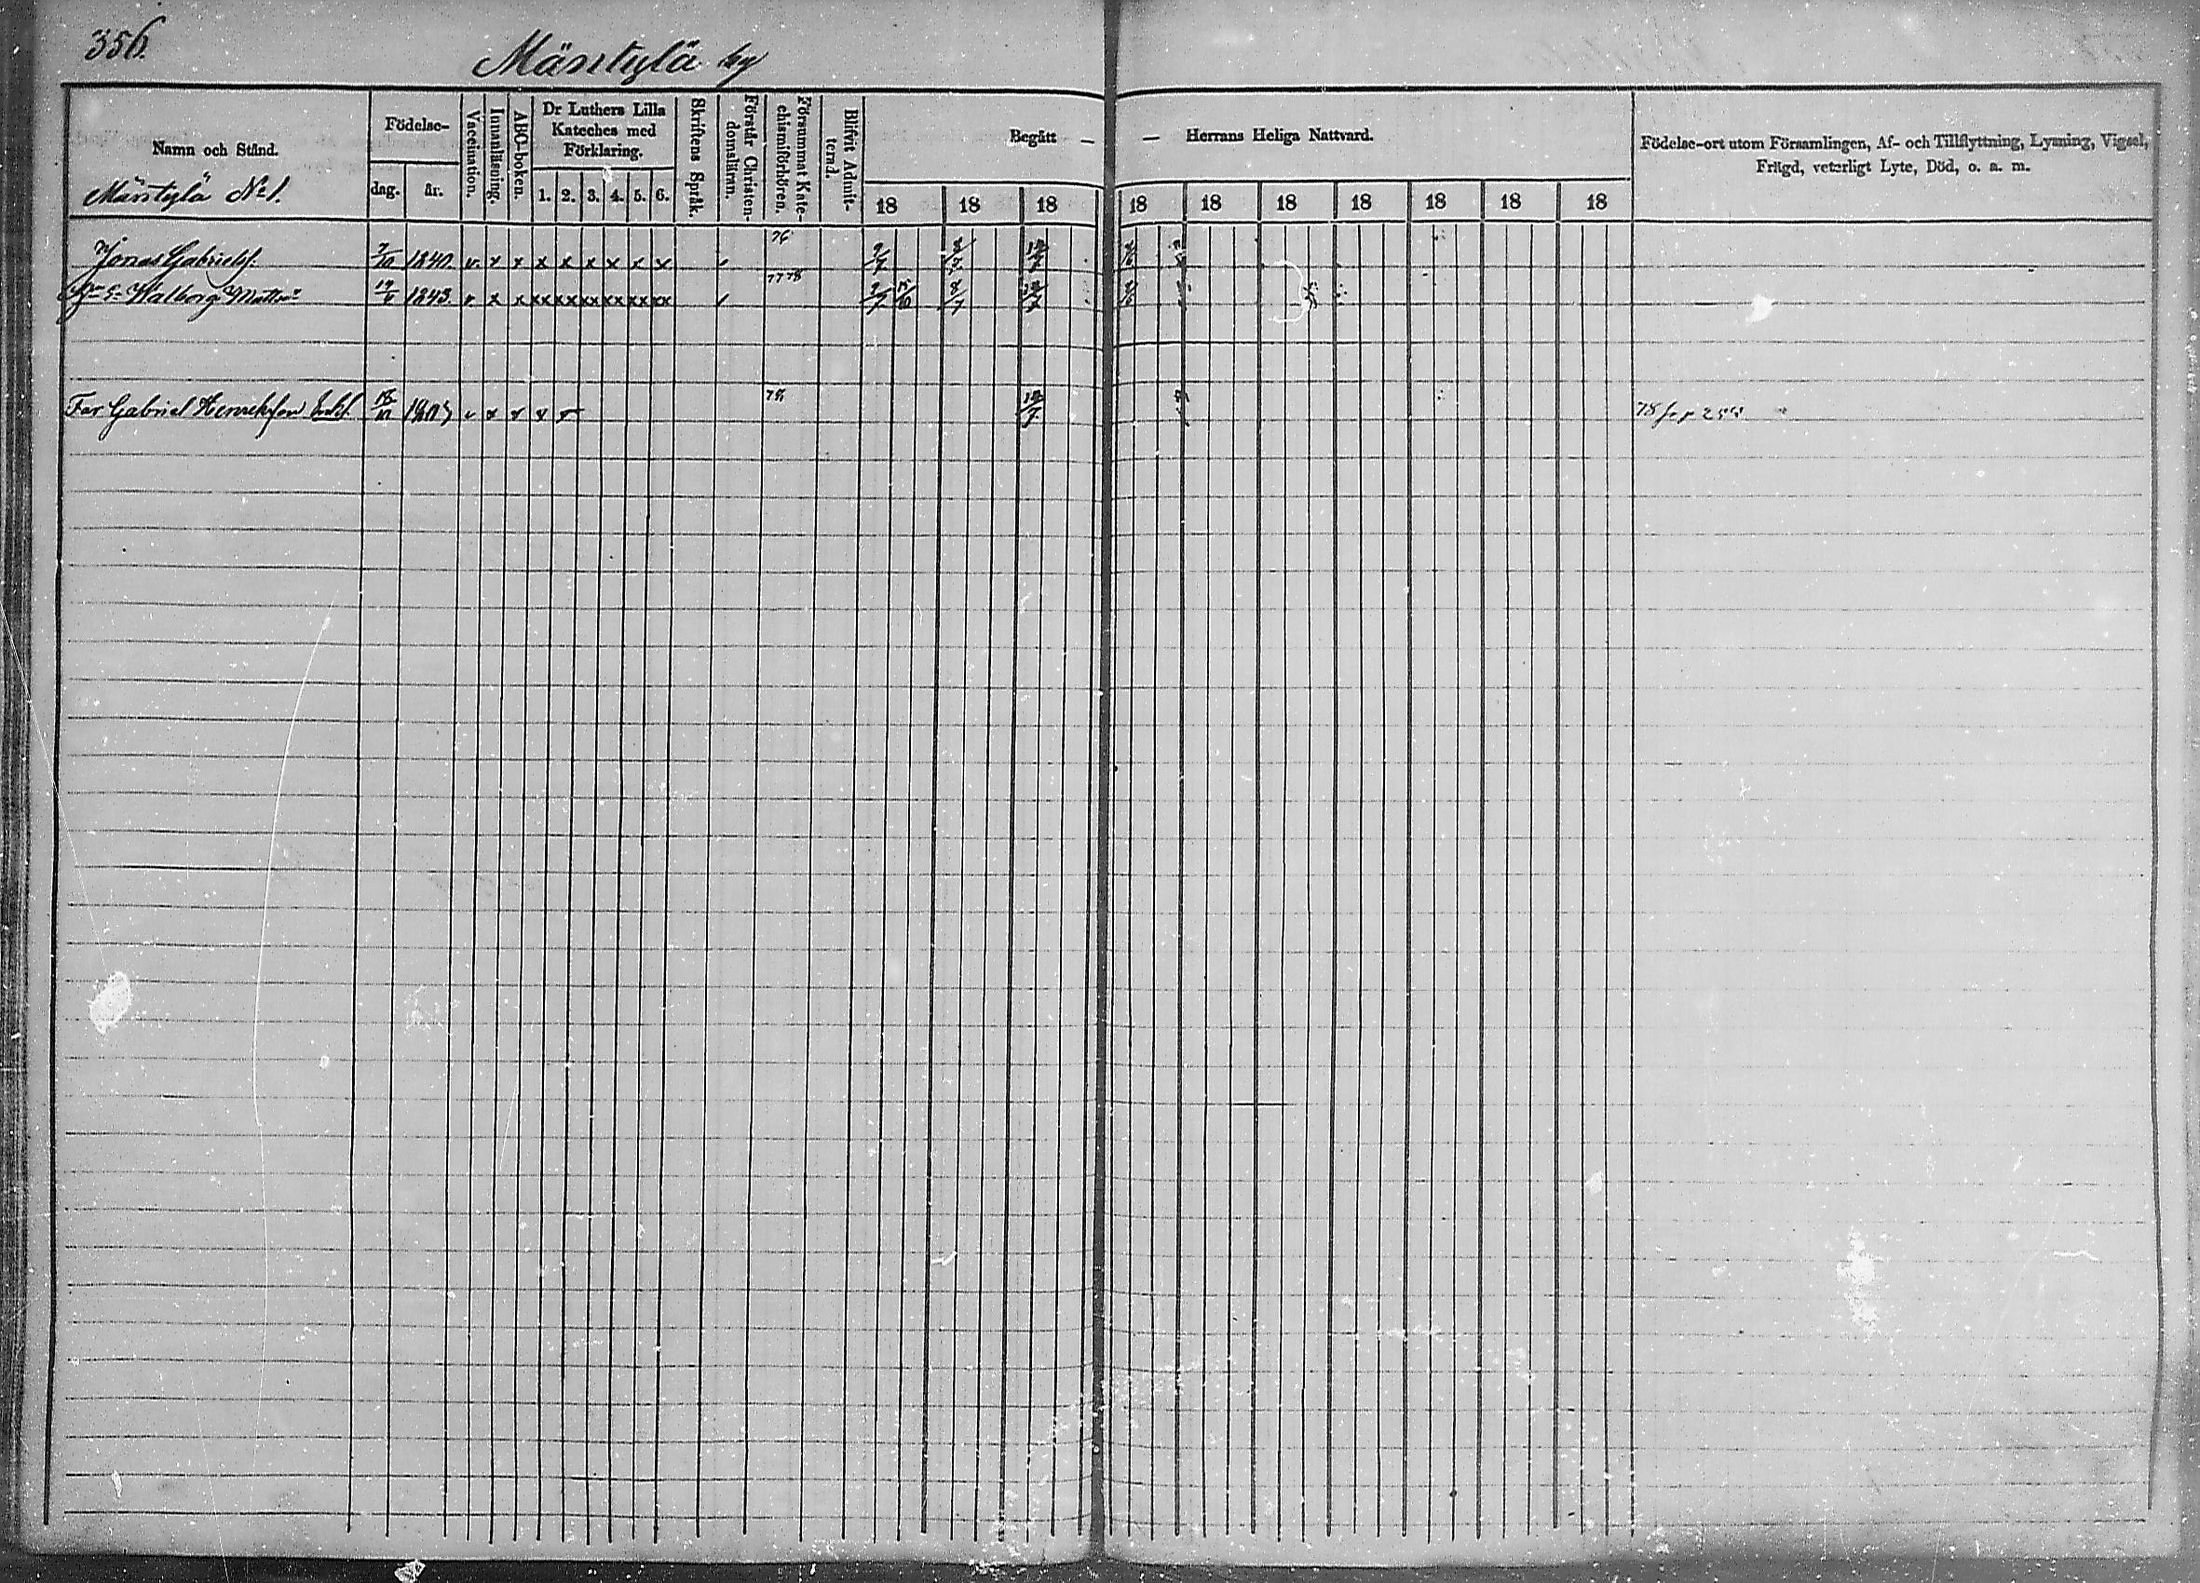 356.
Mäntylä by
Namn och Stånd.
Födelse-
dag. år.
Vaccination.
Innanläsning.
ABC-boken.
Dr Luthers Lilla
Kateches med
Förklaring.
1. 2. 3. 4. 5. 6.
Skriftens Språk.
Förstår Christen-
domsläran.
Försummat Kate-
chismiförhören.
Blifvit Admit-
terad.
Begått — — Herrans Heliga Nattvard.
18 18 18 18 18 18 18 18 18 18
Födelse-ort utom Församlingen, Af- och Tillflyttning, Lysning, Vigsel,
Frägd, veterligt Lyte, Död, o. a. m.
Mäntylä No 1.
76
Jonas Gabrielss. 7/10 1840. v. x x x x x x x x 9/7 8/7 12/7
77 78
Walborg Mattsdr 1843. v x x xx xx xx xx xx xx 9/7 15/10 8/7 12/7
Far Gabriel Henriksson v x x x 12/7 78